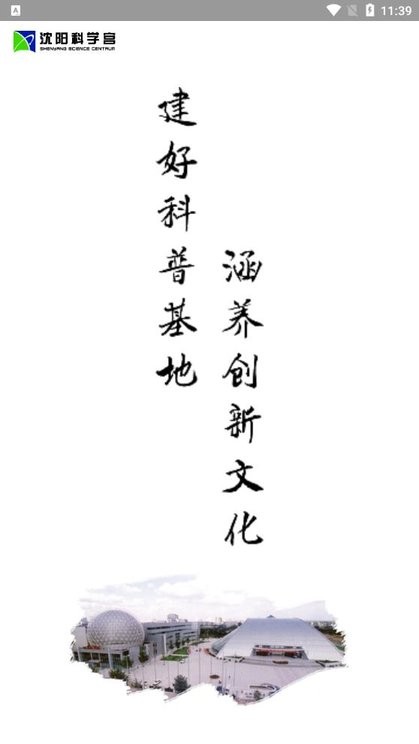 11:39
沈阳科学宫
SHENYANG SCIENCE CENTRUM
建好科普基地
涵养创新文化